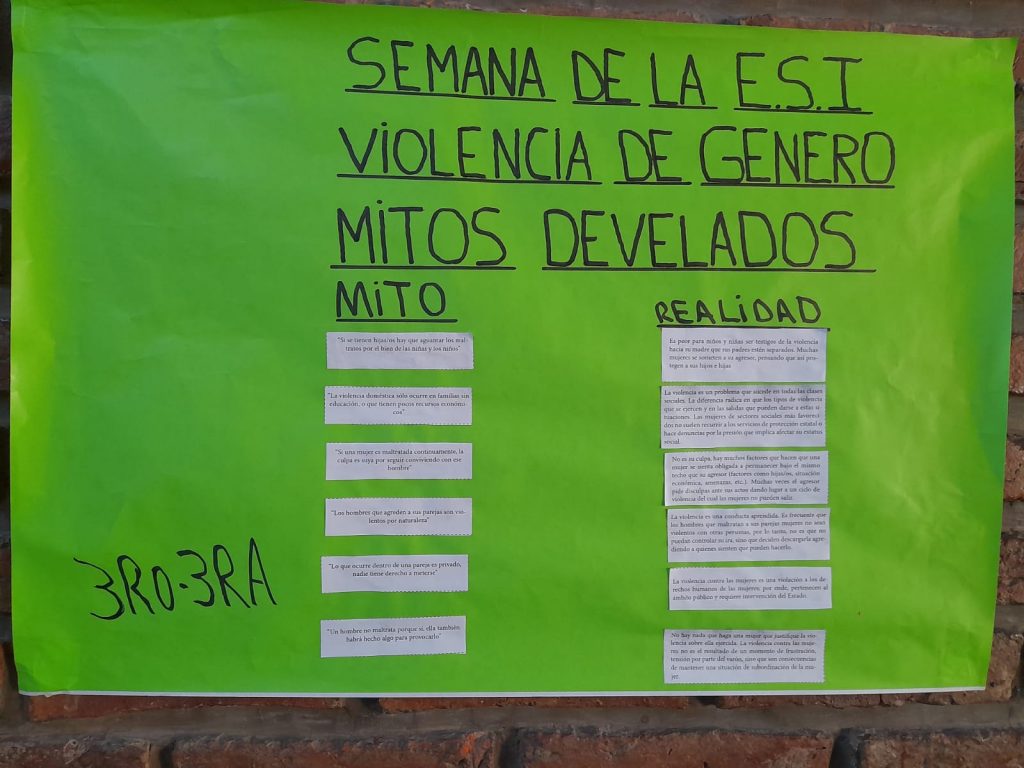 SEMANA DE LA E.S.I
VIOLENCIA DE GENERO
MITOS DEVELADOS
MITO
REALIDAD
"Si se tienen hijas/os hay que aguantar los mal-
tratos por el bien de las niñas y los niños"
Es peor para niños y niñas ser testigos de la violencia
hacia su madre que sus padres estén separados. Muchas
mujeres se someten a su agresor, pensando que así pro-
tegen a sus hijos e hijas
"La violencia doméstica sólo ocurre en familias sin
educación, o que tienen pocos recursos económi-
cos"
La violencia es un problema que sucede en todas las clases
sociales. La diferencia radica en que los tipos de violencia
que se ejercen y en las salidas que pueden darse a estas si-
tuaciones. Las mujeres de sectores sociales más favoreci-
dos no suelen recurrir a los servicios de protección estatal o
hace denuncias por la presión que implica afectar su estatus
social.
"Si una mujer es maltratada continuamente, la
culpa es suya por seguir conviviendo con ese
hombre"
No es su culpa, hay muchos factores que hacen que una
mujer se sienta obligada a permanecer bajo el mismo
techo que su agresor (factores como hijas/os, situación
económica, amenazas, etc.). Muchas veces el agresor
pide disculpas ante sus actos dando lugar a un ciclo de
violencia del cual las mujeres no pueden salir.
"Los hombres que agreden a sus parejas son vio-
lentos por naturaleza"
La violencia es una conducta aprendida. Es frecuente que
los hombres que maltratan a sus parejas mujeres no sean
violentos con otras personas, por lo tanto, no es que no
puedan controlar su ira, sino que deciden descargarla agre-
diendo a quienes sienten que pueden hacerlo.
"Lo que ocurre dentro de una pareja es privado,
nadie tiene derecho a meterse"
La violencia contra las mujeres es una violación a los de-
rechos humanos de las mujeres, por ende, pertenecen al
ámbito público y requiere intervención del Estado.
3RO-3RA
"Un hombre no maltrata porque sí, ella también
habrá hecho algo para provocarlo"
No hay nada que haga una mujer que justifique la vio-
lencia sobre ella ejercida. La violencia contra las muje-
res no es el resultado de un momento de frustración,
tensión por parte del varón, sino que son consecuencias
de mantener una situación de subordinación de la mu-
jer.